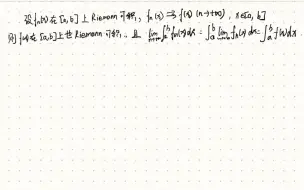 设 fₙ(x) 在 [a, b] 上 Riemann 可积, fₙ(x) ⇉ f(x) (n→+∞), x∈[a, b]
则 f(x) 在 [a, b] 上也 Riemann 可积, 且 lim_{n→+∞} ∫ₐᵇ fₙ(x) dx = ∫ₐᵇ lim_{n→+∞} fₙ(x) dx = ∫ₐᵇ f(x) dx.